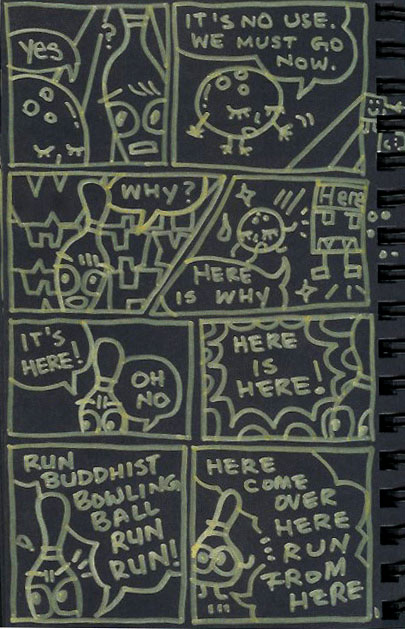 Yes
?
IT'S NO USE.
WE MUST GO
NOW.
WHY?
Here
HERE
IS WHY
IT'S
HERE!
OH
NO
HERE
IS
HERE!
RUN
BUDDHIST
BOWLING
BALL
RUN
RUN!
HERE
COME
OVER
HERE
RUN
FROM
HERE